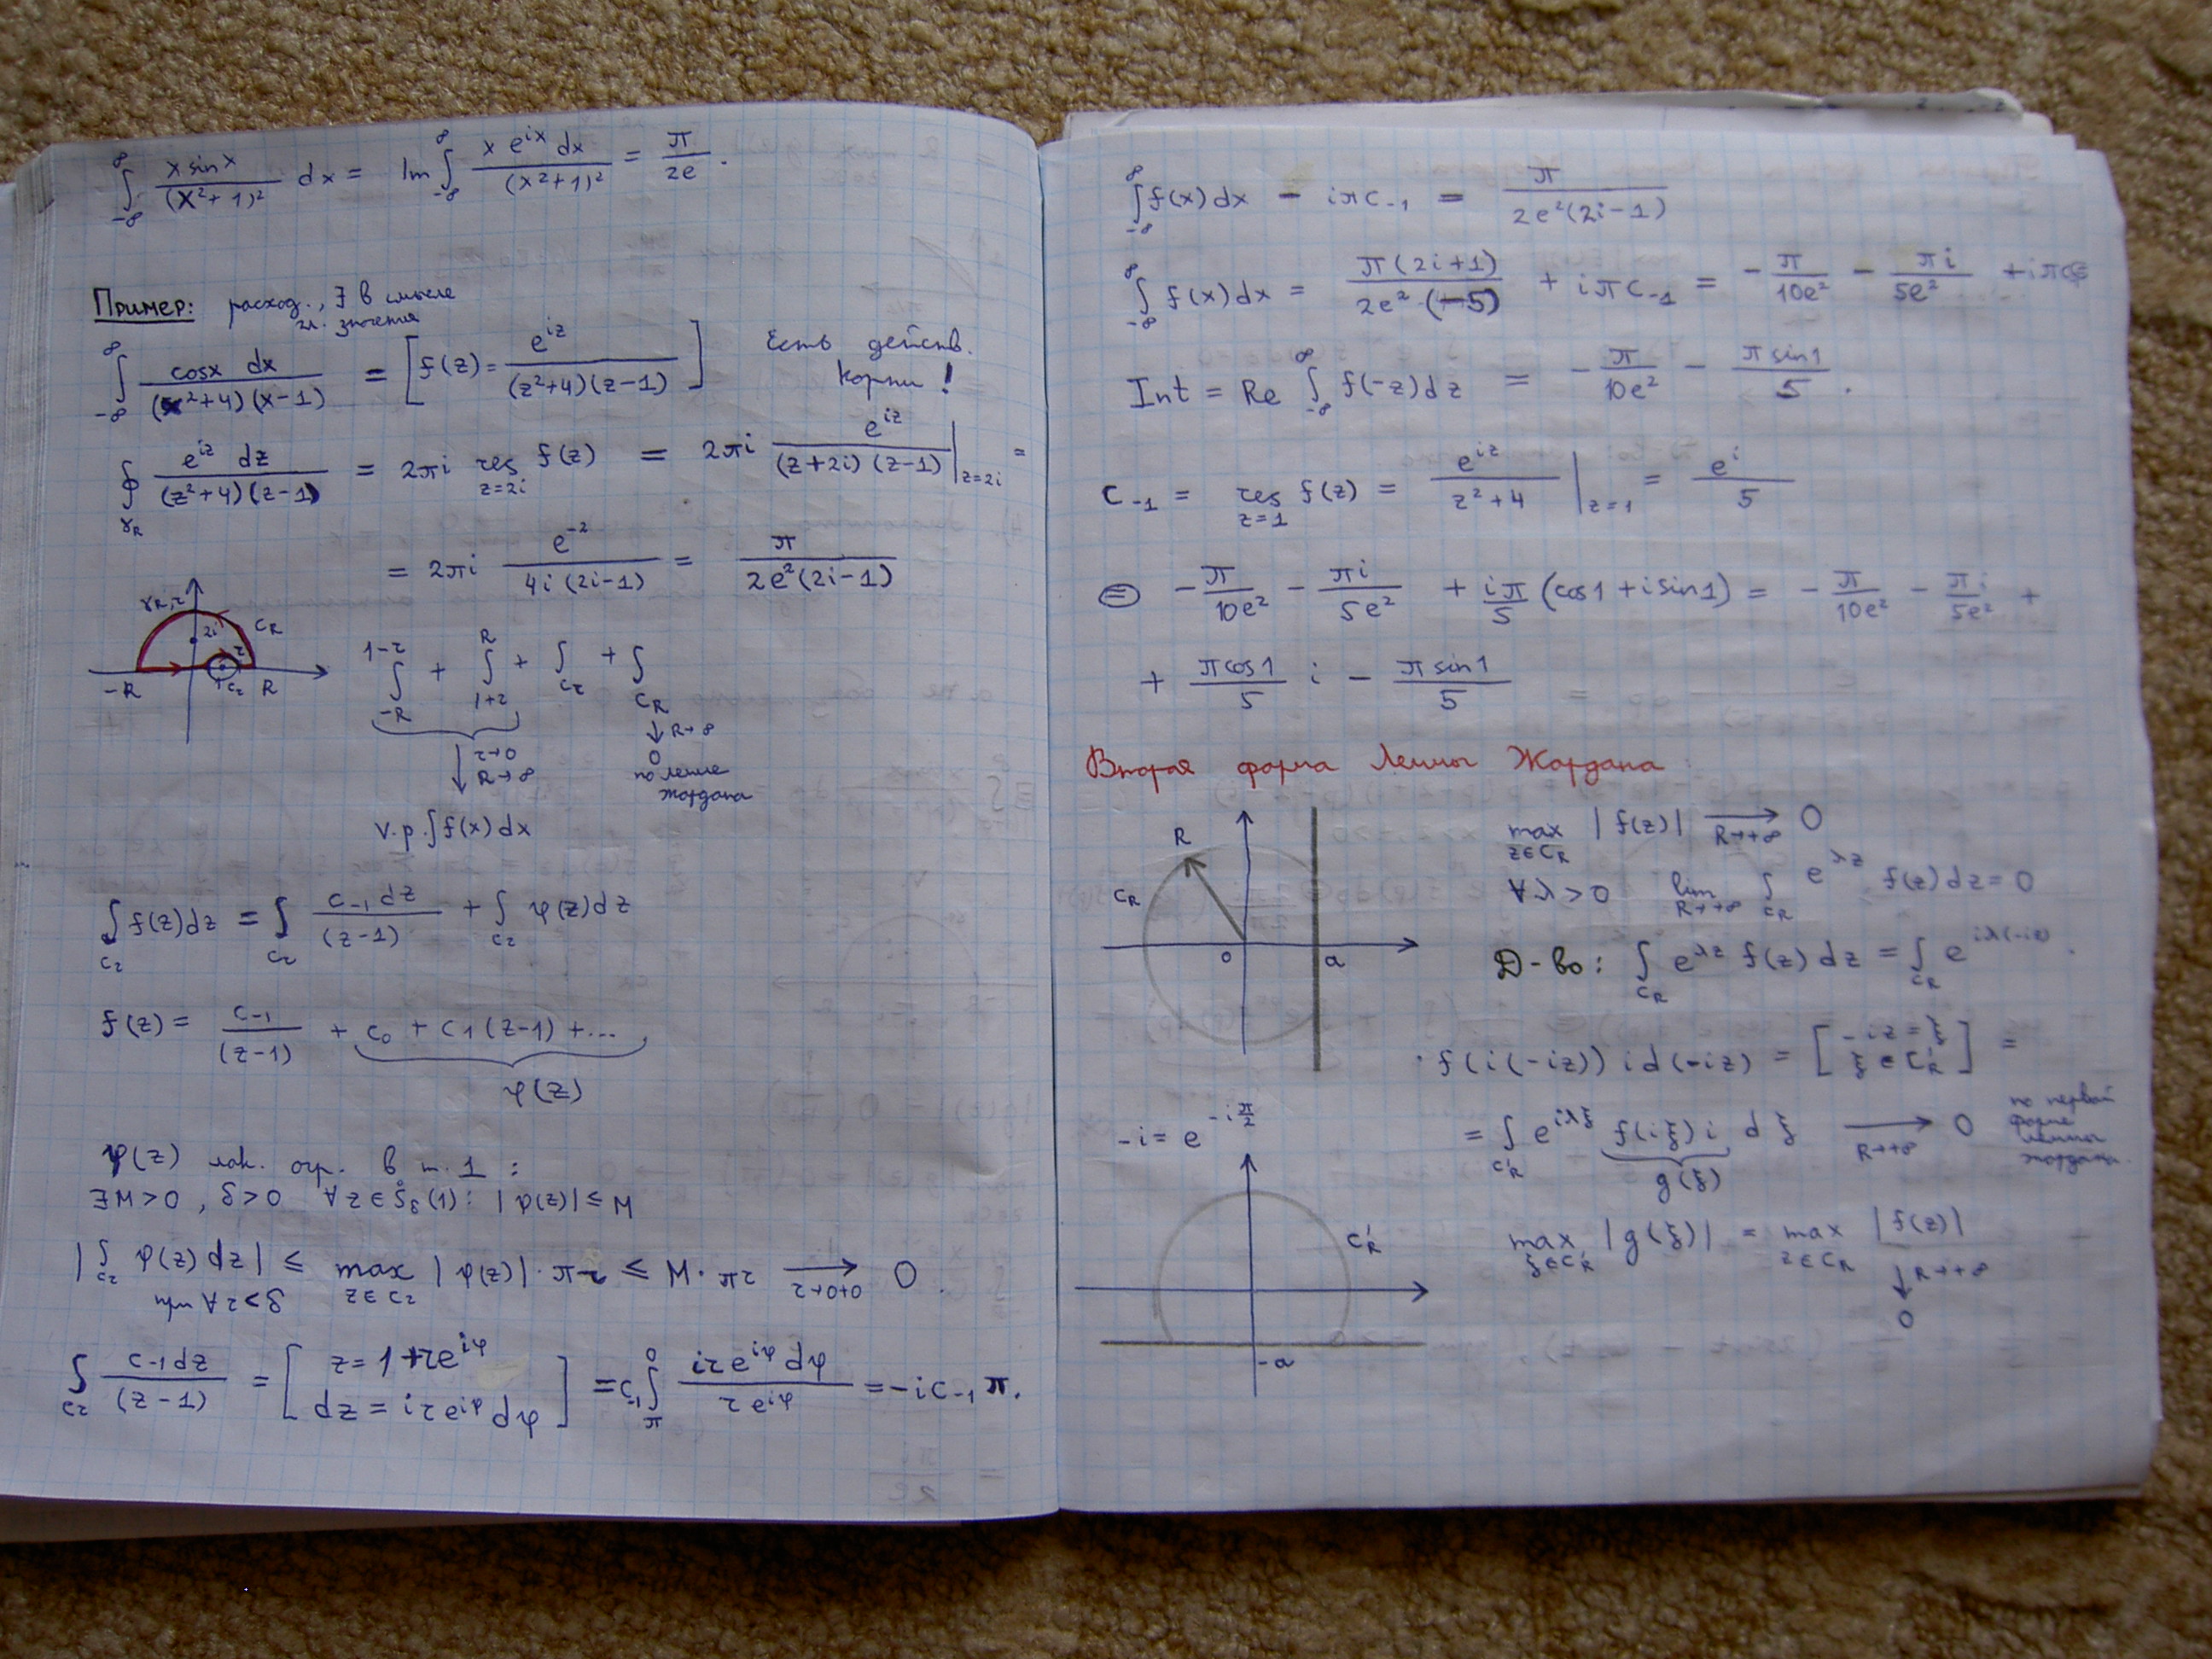 ∫_{-∞}^{∞} \frac{x sin x}{(x²+1)²} dx = Im ∫_{-∞}^{∞} \frac{x e^{ix} dx}{(x²+1)²} = \frac{π}{2e}.
Пример: расход., ∃ в смысле
гл. значения
∫_{-∞}^{∞} \frac{cosx dx}{(x²+4)(x-1)} = [f(z) = \frac{e^{iz}}{(z²+4)(z-1)}] Есть действ.
корни!
∮_{γ_R} \frac{e^{iz} dz}{(z²+4)(z-1)} = 2πi res_{z=2i} f(z) = 2πi \frac{e^{iz}}{(z+2i)(z-1)}|_{z=2i} =
= 2πi \frac{e^{-2}}{4i(2i-1)} = \frac{π}{2e²(2i-1)}
γ_{R,r} 2i C_R r
-R 1 C_r R
∫_{-R}^{1-r} + ∫_{1+r}^{R} + ∫_{C_r} + ∫_{C_R}
↓ r→0 R→∞
↓ R→∞
0
по лемме
Жордана
v.p. ∫f(x)dx
∫_{C_r} f(z)dz = ∫_{C_r} \frac{c_{-1} dz}{(z-1)} + ∫_{C_r} φ(z)dz
f(z) = \frac{c_{-1}}{(z-1)} + c_0 + c_1(z-1) + ...
φ(z)
φ(z) лок. огр. в т. 1 :
∃M>0, δ>0 ∀z∈S̊_δ(1): |φ(z)| ≤ M
|∫_{C_r} φ(z)dz| ≤ max_{z∈C_r} |φ(z)|·πr ≤ M·πr →_{r→0+0} 0.
при ∀r<δ
∫_{C_r} \frac{c_{-1}dz}{(z-1)} = [z=1+re^{iφ}, dz=ire^{iφ}dφ] = c_{-1} ∫_{π}^{0} \frac{ire^{iφ}dφ}{re^{iφ}} = -ic_{-1}π.
∫_{-∞}^{∞} f(x)dx - iπc_{-1} = \frac{π}{2e²(2i-1)}
∫_{-∞}^{∞} f(x)dx = \frac{π(2i+1)}{2e²·(-5)} + iπc_{-1} = -\frac{π}{10e²} - \frac{πi}{5e²} + iπc
Int = Re ∫_{-∞}^{∞} f(-z)dz = -\frac{π}{10e²} - \frac{π sin1}{5}.
c_{-1} = res_{z=1} f(z) = \frac{e^{iz}}{z²+4}|_{z=1} = \frac{e^{i}}{5}
⊜ -\frac{π}{10e²} - \frac{πi}{5e²} + \frac{iπ}{5}(cos1+isin1) = -\frac{π}{10e²} - \frac{πi}{5e²} +
+ \frac{πcos1}{5} i - \frac{π sin1}{5}
Вторая форма Леммы Жордана
R C_R 0 a
max_{z∈C_R} |f(z)| →_{R→+∞} 0
∀λ>0 lim_{R→+∞} ∫_{C_R} e^{λz} f(z)dz = 0
Д-во: ∫_{C_R} e^{λz} f(z)dz = ∫_{C_R} e^{iλ(-iz)} ·
· f(i(-iz)) i d(-iz) = [-iz=ξ, ξ∈C'_R] =
-i = e^{-i\frac{π}{2}}
= ∫_{C'_R} e^{iλξ} f(iξ)i dξ →_{R→+∞} 0 по первой
форме
леммы
Жордана.
g(ξ)
C'_R -a
max_{ξ∈C'_R} |g(ξ)| = max_{z∈C_R} |f(z)|
↓ R→+∞
0